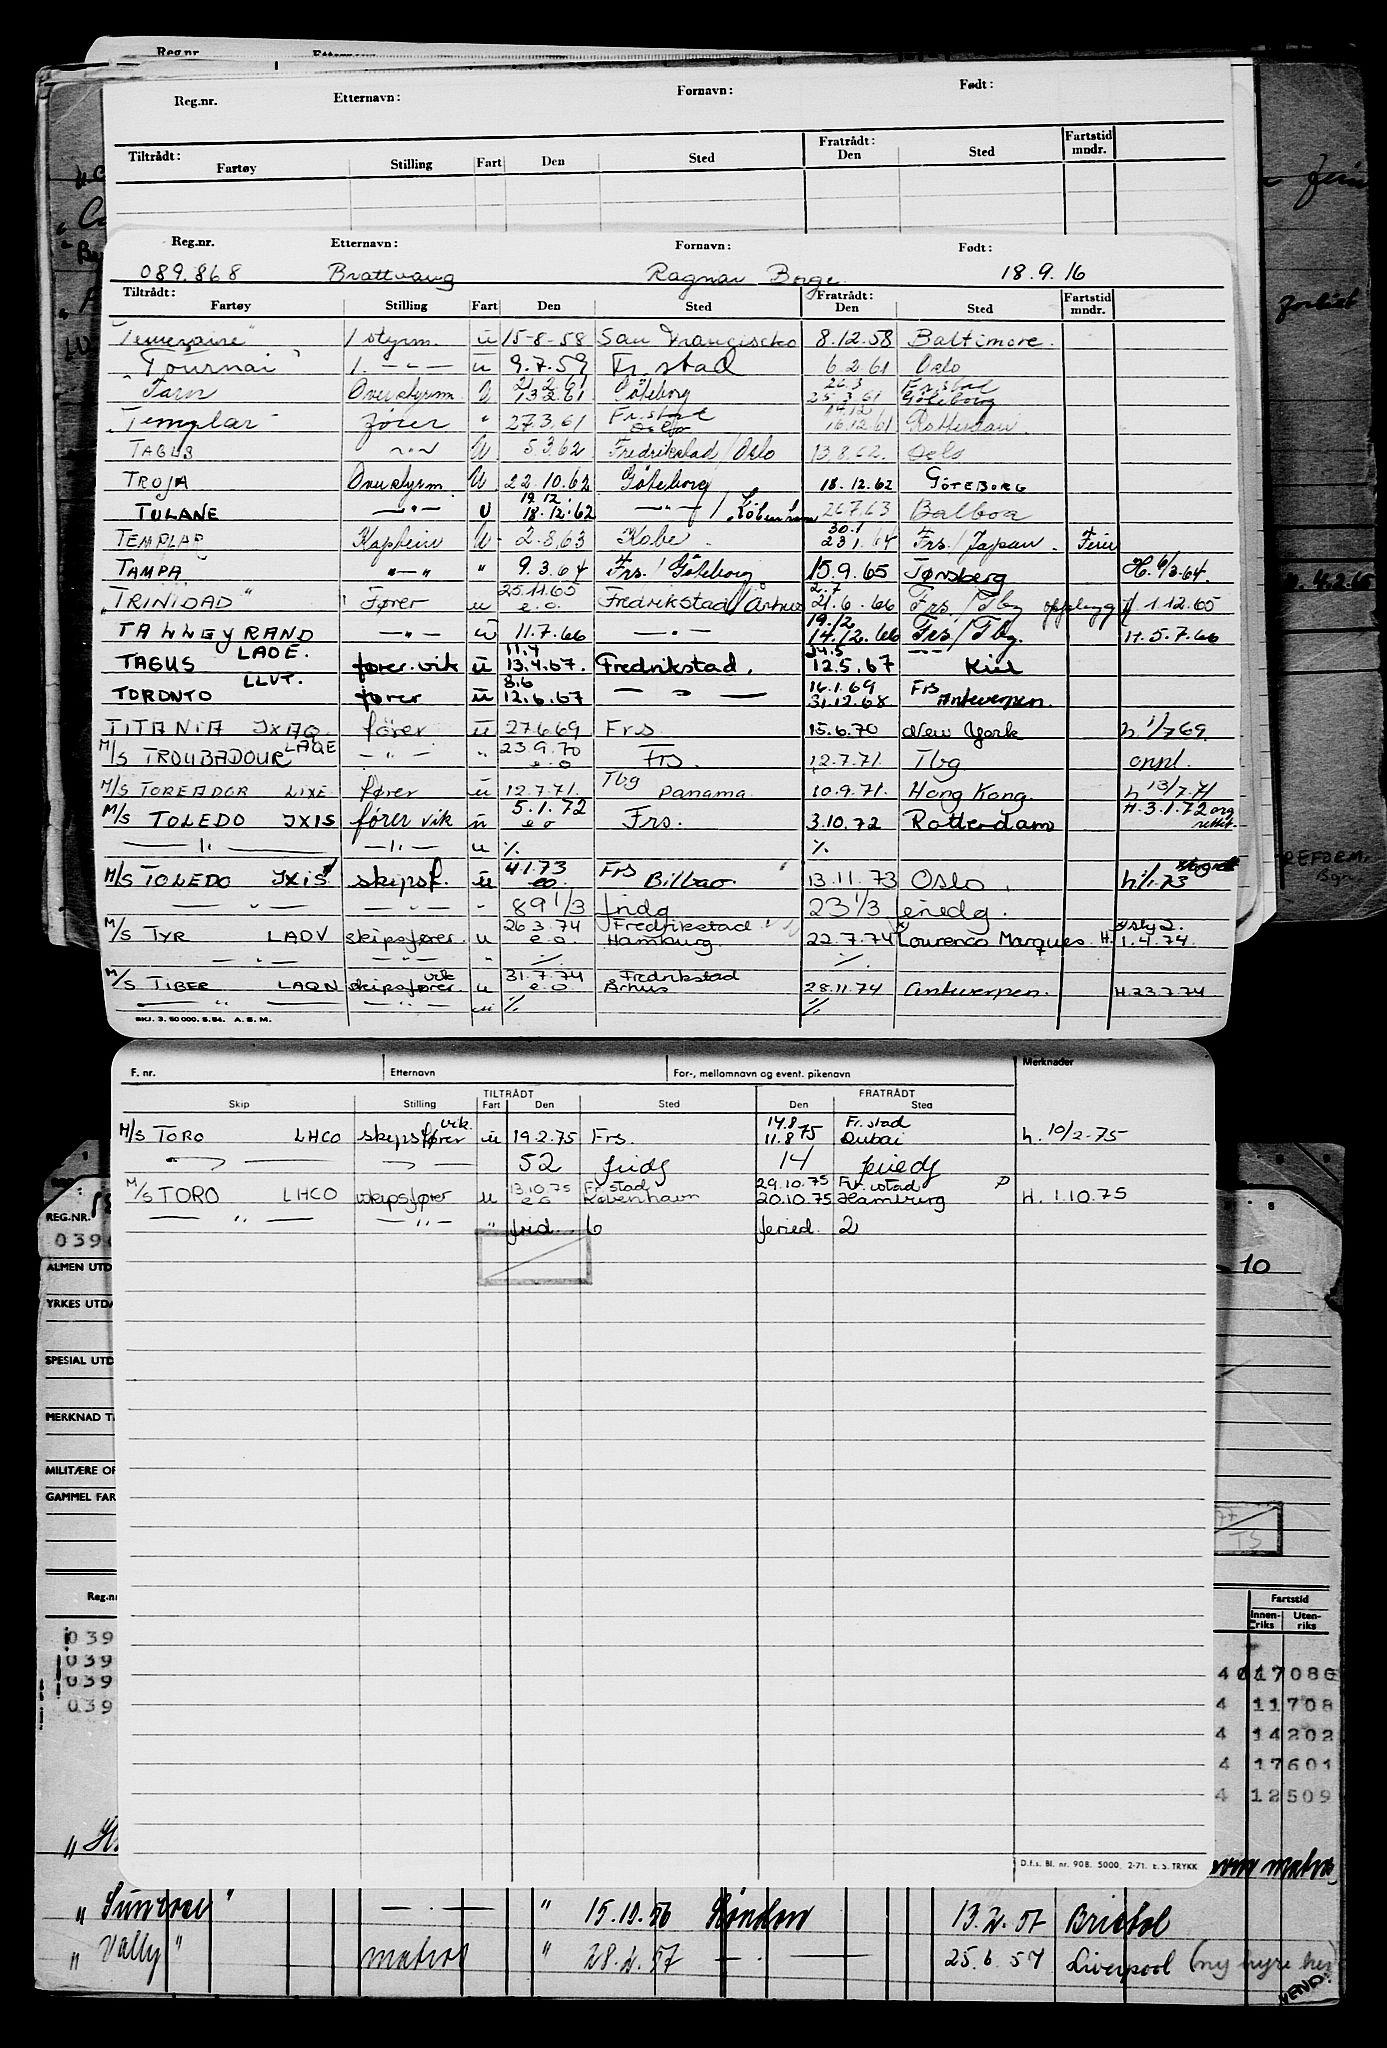 Reg.nr. Etternavn: Fornavn: Født:
Tiltrådt: Fratrådt: Fartstid
Fartøy Stilling Fart Den Sted Den Sted mndr.
Reg.nr. Etternavn: Fornavn: Født:
089.868 Brattvang Ragnar Borge 18.9.16
Tiltrådt: Fratrådt: Fartstid
Fartøy Stilling Fart Den Sted Den Sted mndr.
"Temeraire" 1 styrm. u 15-8-58 San Francisco 8.12.58 Baltimore.
"Tournai" 1. -"- u 9.7.59 Fr.stad 6.2.61 Oslo
21.2.61 26.3 Fr.stad
"Tarn" Overstyrm. U 13.2.61 Göteborg 25.3.61 Göteborg
Fr.stad 14.12
"Templar" fører " 27.3.61 Oslo 16.12.61 Rotterdam
TAGUS -"- U 5.3.62 Fredrikstad / Oslo 13.8.62. Oslo
TROJA Overstyrm. U 22.10.62 Göteborg 18.12.62 GÖTEBORG
19.12.
TULANE -"- U 18.12.62 -"- / København 26.7.63 Balboa
30.1
TEMPLAR Kaptein U 2.8.63 Kobe. 23.1.64 Frs. / Japan. Ferie
TAMPA -"- " 9.3.64 Frs. / Göteborg 15.9.65 Tønsberg H. 6/3.64.
25.11.65 2.7
"TRINIDAD" Fører u e.o. Fredrikstad / Århus 21.6.66 Frs / Tbg opplegg 1.12.65
19.12
TALLEYRAND -"- u 11.7.66 -"- 14.12.66 Frs / Tbg. H.5.7.66
LADE. 11.4 24.5 -"-
TAGUS fører. vik u 13.4.67. Fredrikstad. 12.5.67 Kiel
LLVT. 8.6 16.1.69 Frs
TORONTO fører u 12.6.67 -"- 31.12.68 Antwerpen.
TITANIA JXAQ. fører u 27.6.69 Frs. 15.6.70 New York h. 1/7 69.
LAQE 23.9.70
M/S TROUBADOUR -"- " e.o Frs. 12.7.71. Tbg oppl.
Tbg
M/S TOREADOR LIXE fører u 12.7.71. Panama. 10.9.71. Hong Kong. h 13/7.71
5.1.72 H.3.1.72 org
M/S TOLEDO JXIS fører vik u e o Frs. 3.10.72 Rotterdam rettet.
-"- -"- u % %
4.1.73 Frs
M/S TOLEDO JXIS skipsf. u eo. Bilbao. 13.11.73 Oslo. h. 1/1.73
-"- -"- " 89 1/3 fridg 23 1/3 feriedg.
26.3.74 Fredrikstad
M/S TYR LADV skipsfører. u e.o. Hamburg. 22.7.74 Lourenco Marques. H. 1.4.74.
-"- -"- " % %
vik 31.7.74 Fredrikstad
M/S TIBER LAQN skipsfører u e.o Århus 28.11.74 Antwerpen. H.23.7.74
-"- -"- u % %
SKJ. 3. 50 000. 5. 54. A. S. M.
F. nr. Etternavn For-, mellomnavn og event. pikenavn Merknader
TILTRÅDT FRATRÅDT
Skip Stilling Fart Den Sted Den Sted
vik. 14.8 Fr.stad
M/S TORO LHCO skipsfører u 19.2.75 Frs. 11.8.75 Dubai h. 10/2-75
-"- -"- 52 fridg 14 feriedg
13.10.75 Fr.stad 29.10.75 Fr.stad P
M/S TORO LHCO vskipsfører u e o København 20.10.75 Hamburg H. 1.10.75
-"- -"- " frid. 6 feried. 2
D.f.s. Bl. nr. 908. 5000. 2-71. E. S. TRYKK
REG.NR.
039
ALMEN UTD
YRKES UTDA
SPESIAL UTD
MERKNAD T
MILITÆRE OP
GAMMEL FAR
10
TS
Reg.nr
Fartstid
Innen- Uten-
riks riks
039
039
039
039
4 117080
4 11708
4 14202
4 17601
4 12509
REFORM.
matros
" -"- " 15.10.56 London 13.2.57 Bristol
" Vally" matros " 28.2.57 -"- 25.6.57 Liverpool (ny hyre her
VEND!